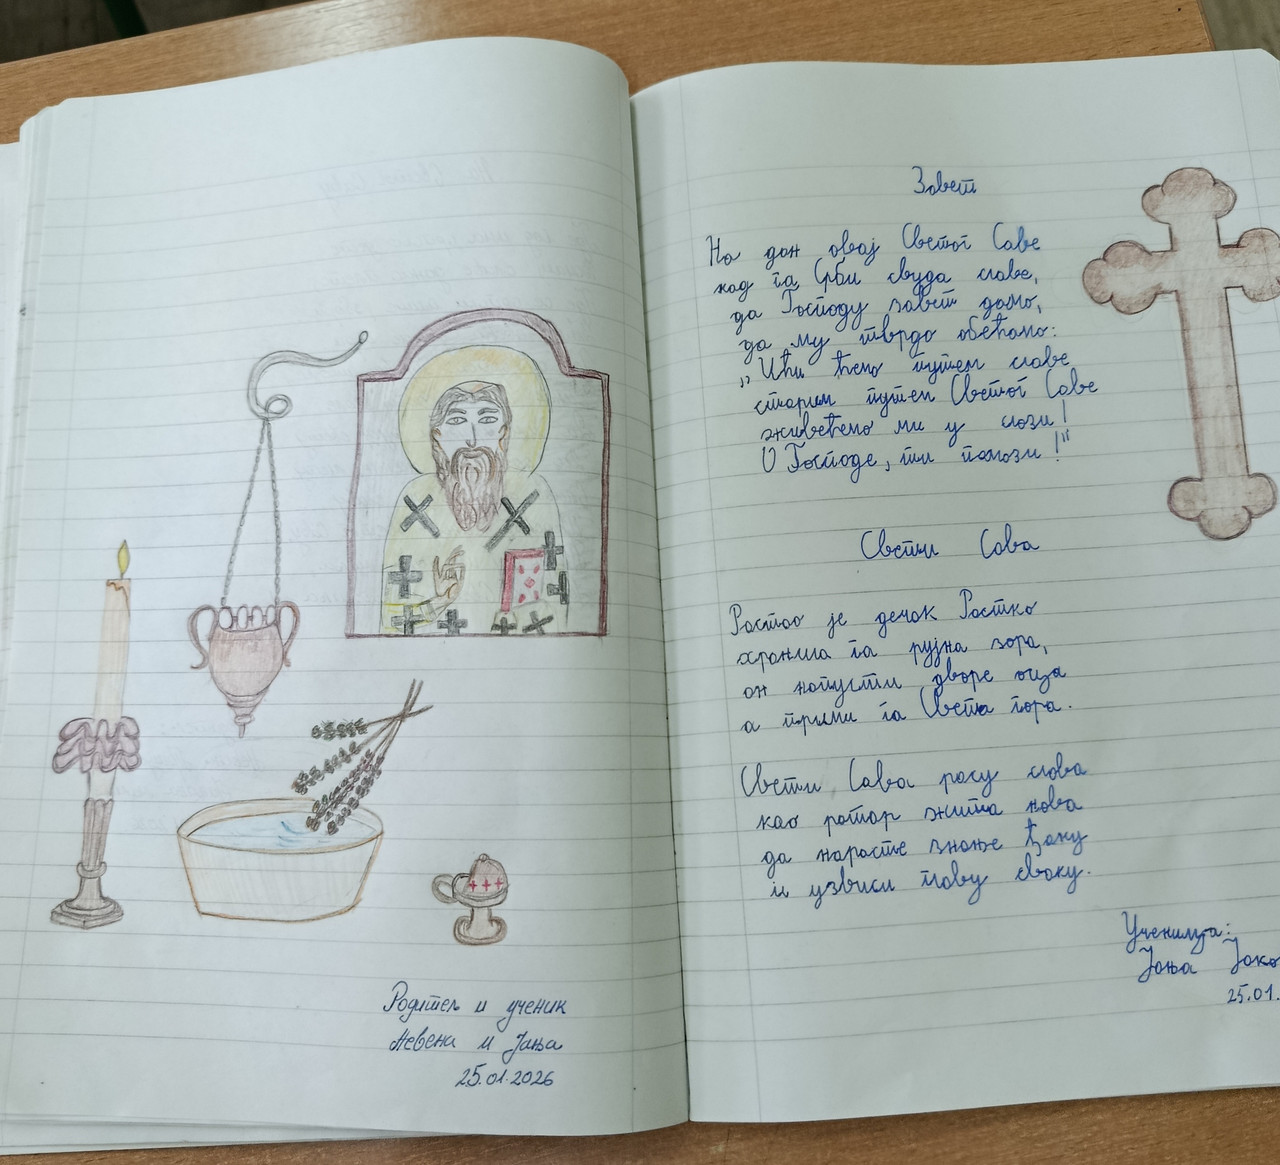 Родитељ и ученик
Невена и Јања
25.01.2026
Завет
На дан овај Светог Саве
кад га Срби свуда славе,
да Господу завет дамо,
да му тврдо обећамо:
„Ићи ћемо путем славе
старим путем Светог Саве
живећемо ми у слози!
О Господе, ти помози!“
Свети Сава
Растао је дечак Растко
хранила га рујна зора,
он напусти дворе оца
а прими га Света гора.
Свети Сава расу слова
као ратар жита нова
да нарасте знање ђаку
и узвиси главу сваку.
Ученица:
Јања
25.01.